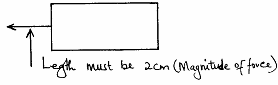 Legth must be 2cm (Magnitude of force)